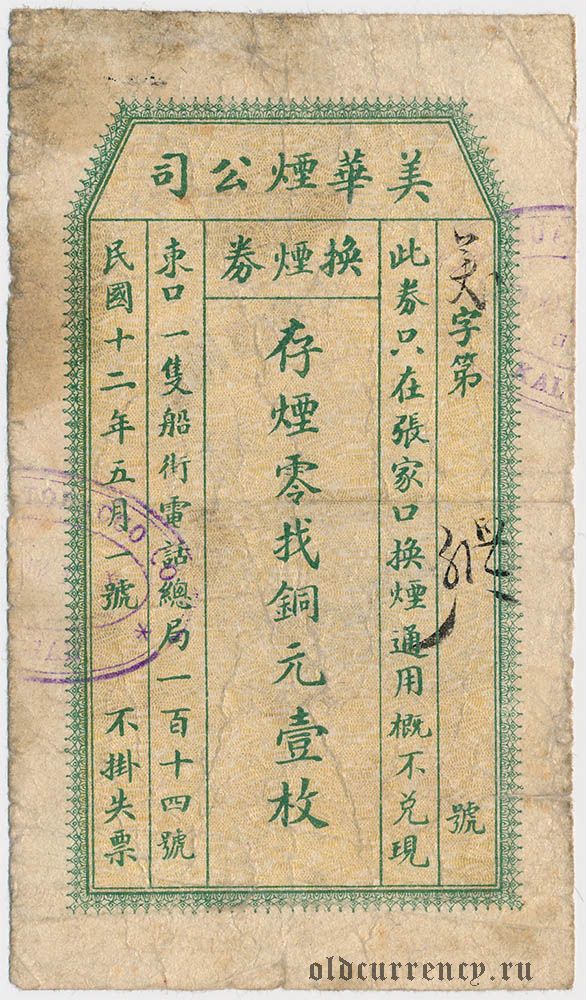 美華煙公司
美字第 號
此券只在張家口換煙通用概不兌現
換煙券
存煙零找銅元壹枚
東口一隻船街電話總局一百十四號
民國十二年五月一號 不掛失票
KAL
oldcurrency.ru